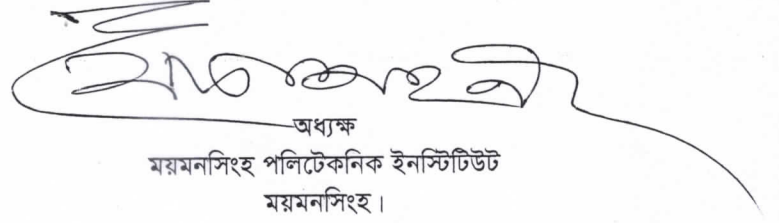 অধ্যক্ষ
ময়মনসিংহ পলিটেকনিক ইনস্টিটিউট
ময়মনসিংহ।